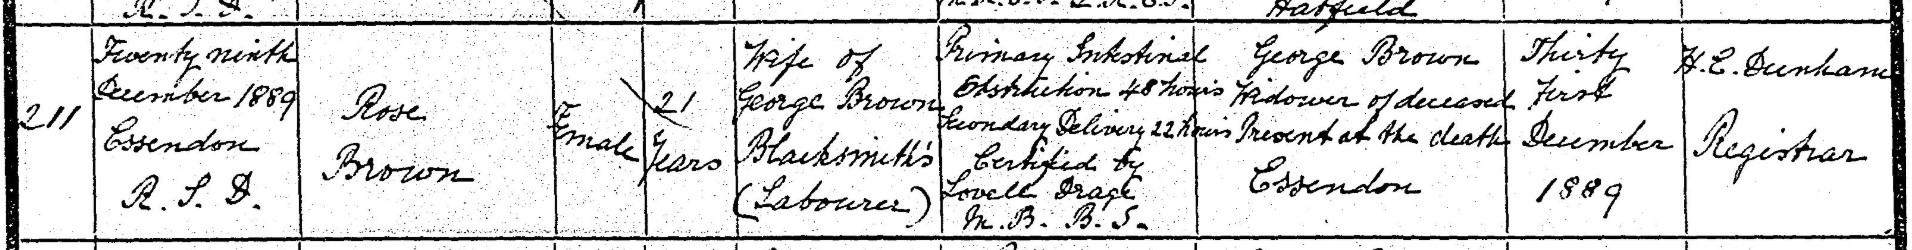 R. S. D.
Hatfield
211
Twenty ninth
December 1889
Essendon
R. S. D.
Rose
Brown
Female
21
Years
Wife of
George Brown
Blacksmith's
(Labourer)
Primary Intestinal
Obstruction 48 hours
Secondary Delivery 22 hours
Certified by
Lovell Drage
M. B. B. S.
George Brown
Widower of deceased
Present at the death
Essendon
Thirty
First
December
1889
H. E. Dunham
Registrar